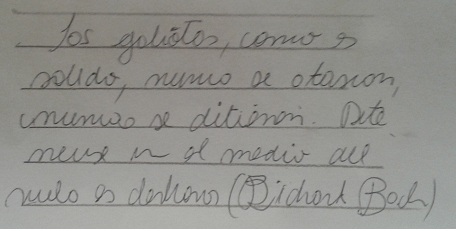 Las gabiotas, como es
sabido, nunca se atascan,
nunca se detienen. Dete
nerse en el medio del
vuelo es deshonor (Richard Bach)